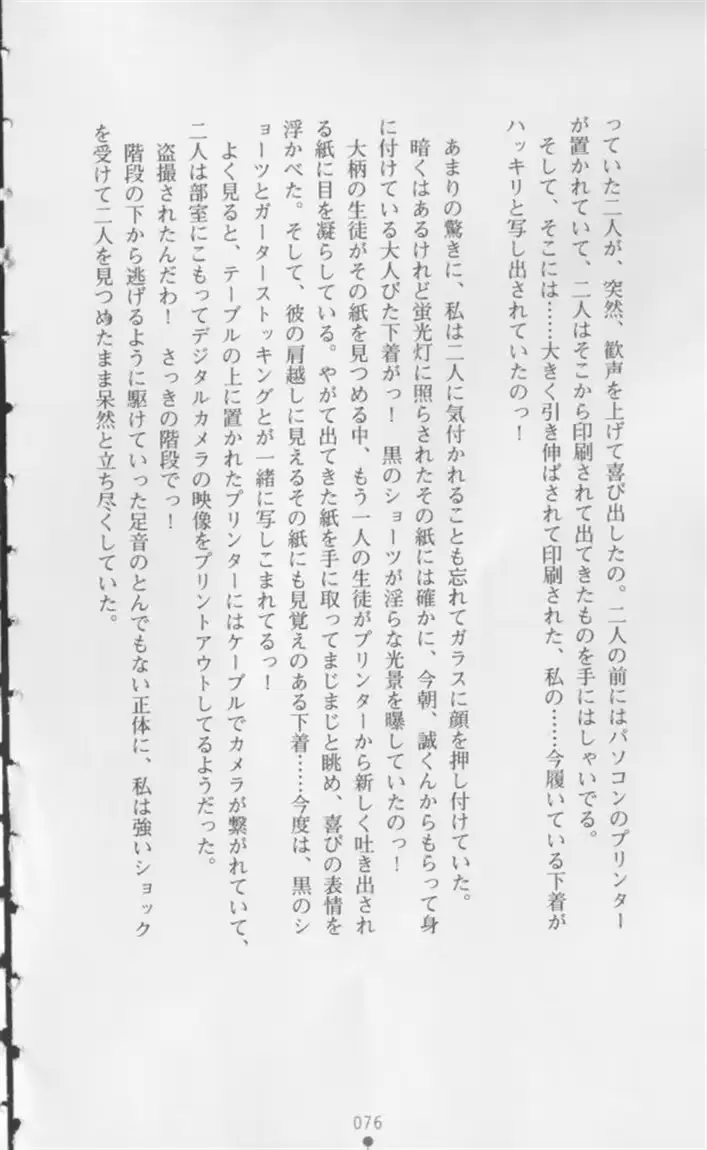 っていた二人が、突然、歓声を上げて喜び出したの。二人の前にはパソコンのプリンター
が置かれていて、二人はそこから印刷されて出てきたものを手にはしゃいでる。
そして、そこには……大きく引き伸ばされて印刷された、私の……今履いている下着が
ハッキリと写し出されていたのっ！
あまりの驚きに、私は二人に気付かれることも忘れてガラスに顔を押し付けていた。
暗くはあるけれど蛍光灯に照らされたその紙には確かに、今朝、誠くんからもらって身
に付けている大人びた下着がっ！　黒のショーツが淫らな光景を曝していたのっ！
大柄の生徒がその紙を見つめる中、もう一人の生徒がプリンターから新しく吐き出され
る紙に目を凝らしている。やがて出てきた紙を手に取ってまじまじと眺め、喜びの表情を
浮かべた。そして、彼の肩越しに見えるその紙にも見覚えのある下着……今度は、黒のシ
ョーツとガーターストッキングとが一緒に写しこまれてるっ！
よく見ると、テーブルの上に置かれたプリンターにはケーブルでカメラが繋がれていて、
二人は部室にこもってデジタルカメラの映像をプリントアウトしてるようだった。
盗撮されたんだわ！　さっきの階段でっ！
階段の下から逃げるように駆けていった足音のとんでもない正体に、私は強いショック
を受けて二人を見つめたまま呆然と立ち尽くしていた。
076